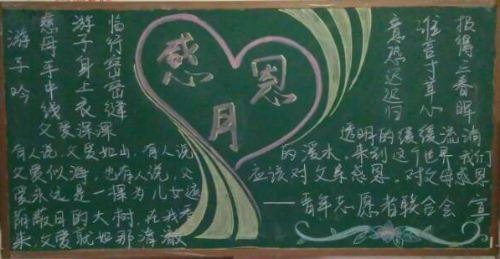 游子吟
慈母手中线
游子身上衣
临行密密缝
意恐迟迟归
谁言寸草心
报得三春晖
感恩月
父爱深深
有人说，父爱如山，有人说
父爱似海，也有人说，父
爱永远是一棵为儿女遮
阴蔽日的大树，在我看
来，父爱就如那清澈
透明的缓缓流淌
的溪水，来到这个世界，我们
应该对父亲感恩，对父母感恩
——青年志愿者联合会 宣